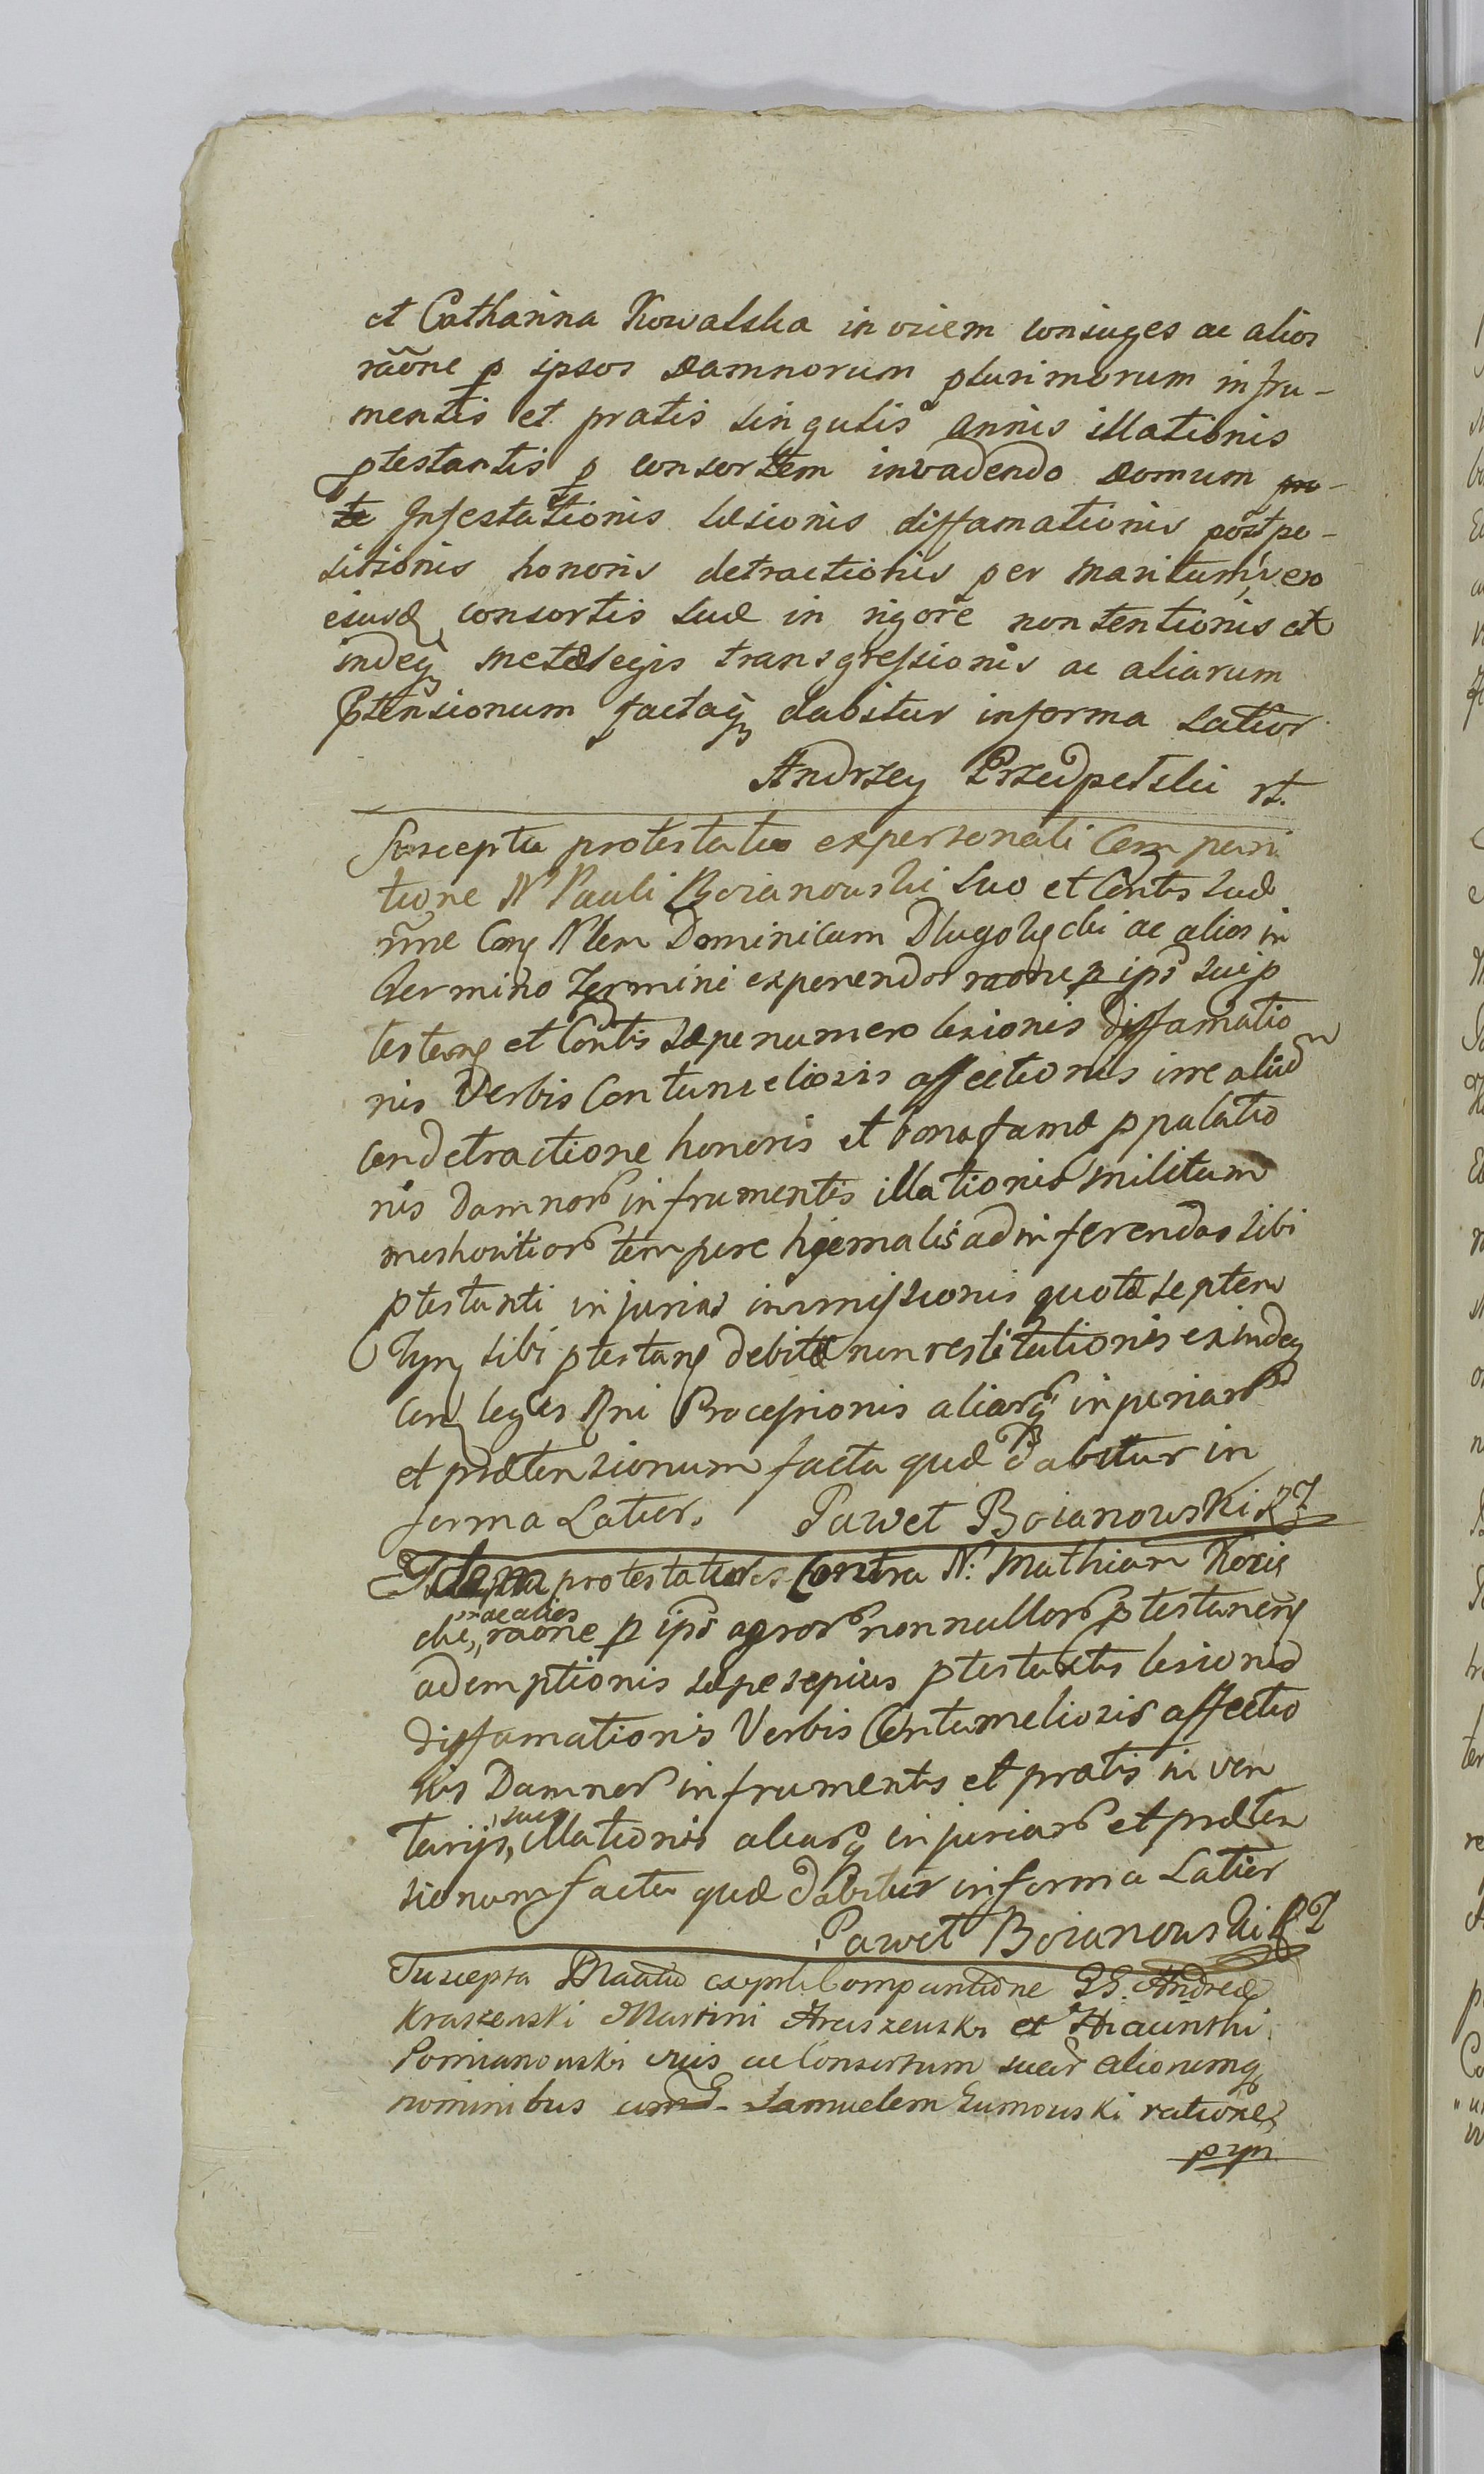 et Catharina Kowalska invicem coniuges ac alios
rãone p ipsos damnorum plurimorum in fru-
mentis et pratis singulis annis illationis
ptestantis p consortem invadendo domum
Infestationis læsionis diffamationis postpo-
sitionis honoris detractionis per maritum vero
eiusd consortis suæ in rigore non tentionis et
indeq metæ legis transgressionis ac aliarum
Ptensionum factaq dabitur in forma latior
Andrzey Przedpełski rt.
Suscepta protestatio ex personali Compari
tione N Pauli Boianowski suo et Contis suæ
nne Con Nlem Dominicum Dlugołęcki ac alios in
termino termini exponendos raone p ips sui p
testan et Contis sæpe numero lesionis diffamatio
nis Verbis Contumeliosis affectionis irre aliud
cen detractione honoris et bona famæ p palatio
nis Damnor in frumentis illationis militum
moshovitior tempore hyemalis ad inferendas sibi
ptestanti injurias immissionis quotæ septem
Tyn sibi ptestan debitæ non restitutionis exindeq
Con leges Rni Processionis aliarq injuriar
et prætensionum facta quæ dabitur in
forma Latior. Paweł Boianowski RZ
Idem protestatur Contra N. Mathiam Kozic
cki, ac alios raone p ips agror nonnullor ptestanen
ademptionis sæpe sepius ptestantis lesionis
diffamationis Verbis Contumeliosis affectio
nis Damnor in frumentis et pratis in ven
tarijs, suis illationis aliarq injuriar et præten
sionum facta quæ dabitur in forma Latior
Paweł Boianowski RZ
Suscepta Mantio ex pnli Compuntione GG. Andreæ
Kraszewski Martini Kraszewski et Hiacinthi
Pomianowski suis ac Consortum suar aliorumq
nominibus cum G. Samuelem Sumowski ratione
pryn